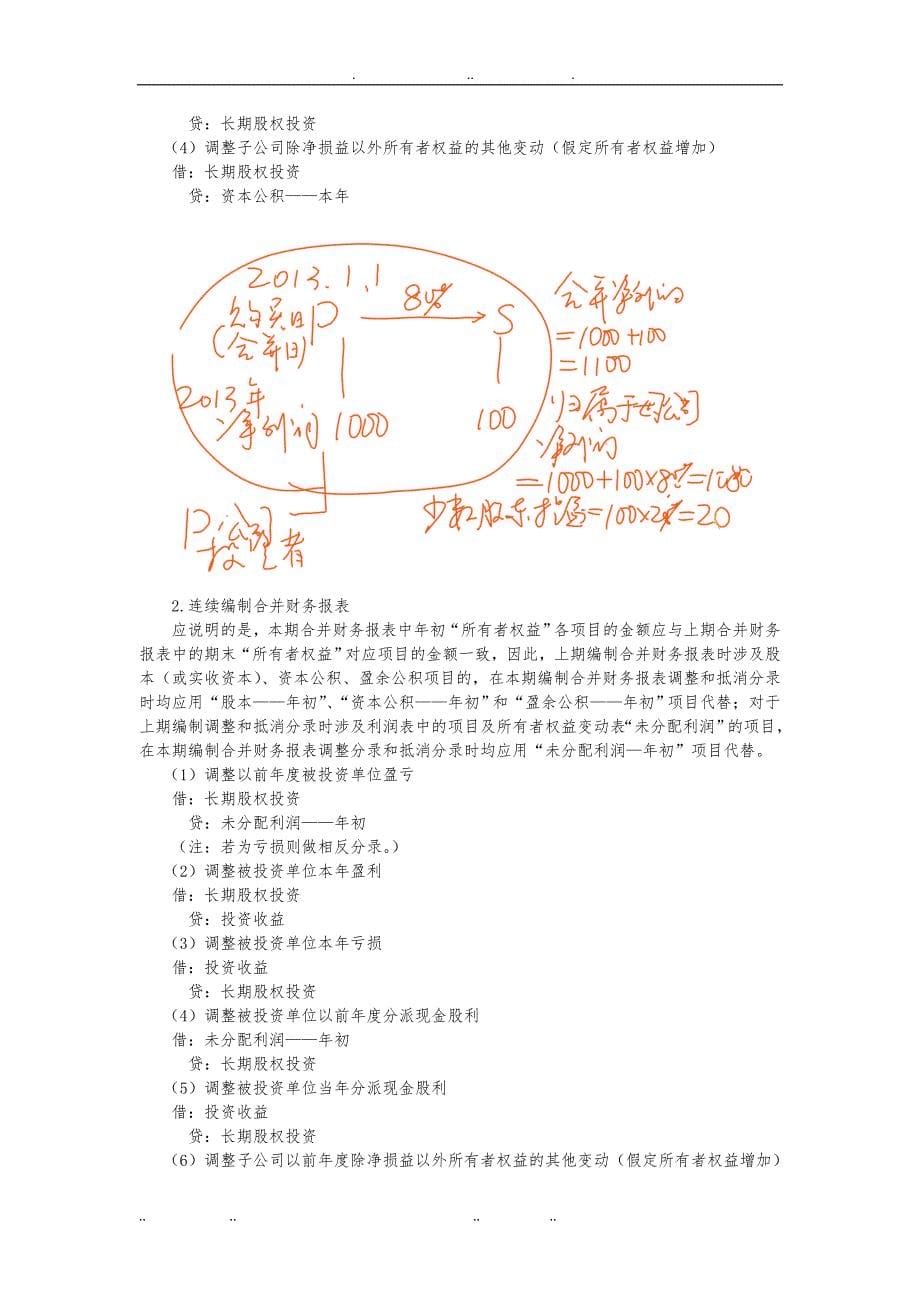 贷：长期股权投资
（4）调整子公司除净损益以外所有者权益的其他变动（假定所有者权益增加）
借：长期股权投资
贷：资本公积——本年
2013.1.1
购买日 P 80% S
(合并日)
2013年
净利润 1000 100
P公司
投资者
合并净利润
=1000+100
=1100
归属于母公司
净利润
=1000+100×80%=1080
少数股东损益=100×20%=20
2.连续编制合并财务报表
应说明的是，本期合并财务报表中年初“所有者权益”各项目的金额应与上期合并财务
报表中的期末“所有者权益”对应项目的金额一致，因此，上期编制合并财务报表时涉及股
本（或实收资本）、资本公积、盈余公积项目的，在本期编制合并财务报表调整和抵消分录
时均应用“股本——年初”、“资本公积——年初”和“盈余公积——年初”项目代替；对于
上期编制调整和抵消分录时涉及利润表中的项目及所有者权益变动表“未分配利润”的项目，
在本期编制合并财务报表调整分录和抵消分录时均应用“未分配利润—年初”项目代替。
（1）调整以前年度被投资单位盈亏
借：长期股权投资
贷：未分配利润——年初
（注：若为亏损则做相反分录。）
（2）调整被投资单位本年盈利
借：长期股权投资
贷：投资收益
（3）调整被投资单位本年亏损
借：投资收益
贷：长期股权投资
（4）调整被投资单位以前年度分派现金股利
借：未分配利润——年初
贷：长期股权投资
（5）调整被投资单位当年分派现金股利
借：投资收益
贷：长期股权投资
（6）调整子公司以前年度除净损益以外所有者权益的其他变动（假定所有者权益增加）